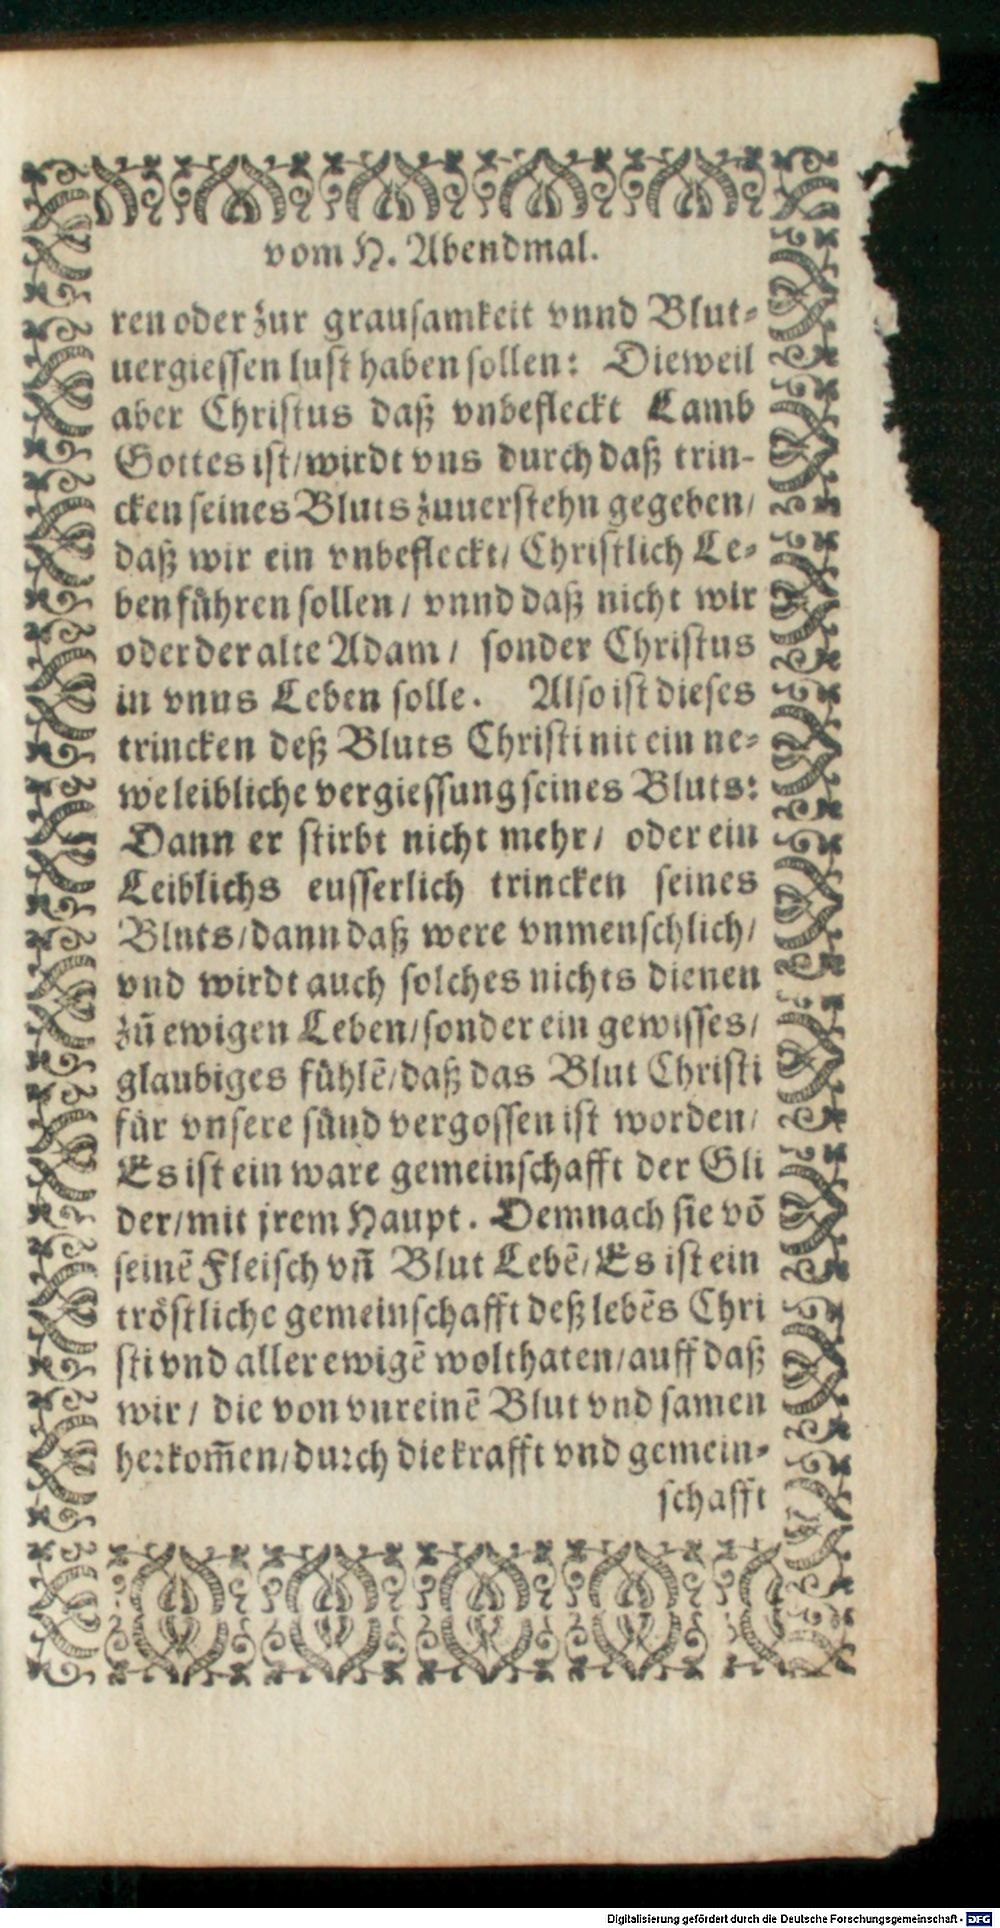 vom H. Abendmal.
ren oder zur grausamkeit vnnd Blut-
uergiessen lust haben sollen: Dieweil
aber Christus daß vnbefleckt Lamb
Gottes ist/ wirdt vns durch daß trin-
cken seines Bluts zuuerstehn gegeben/
daß wir ein vnbefleckt/ Christlich Le-
ben führen sollen/ vnnd daß nicht wir
oder der alte Adam/ sonder Christus
in vnns Leben solle. Also ist dieses
trincken deß Bluts Christi nit ein ne-
we leibliche vergiessung seines Bluts:
Dann er stirbt nicht mehr/ oder ein
Leiblichs eusserlich trincken seines
Bluts/ dann daß were vnmenschlich/
vnd wirdt auch solches nichts dienen
zū ewigen Leben/ sonder ein gewisses/
glaubiges fühlē/ daß das Blut Christi
für vnsere sünd vergossen ist worden/
Es ist ein ware gemeinschafft der Gli
der/ mit jrem Haupt. Demnach sie vō
seinē Fleisch vñ Blut Lebē/ Es ist ein
tröstliche gemeinschafft deß lebēs Chri
sti vnd aller ewigē wolthaten/ auff daß
wir/ die von vnreinē Blut vnd samen
herkom̄en/ durch die krafft vnd gemein-
schafft
Digitalisierung gefördert durch die Deutsche Forschungsgemeinschaft - DFG